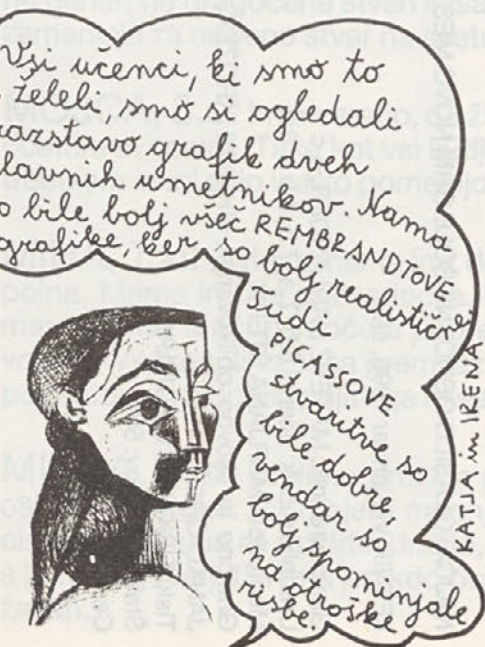 Vsi učenci, ki smo to
želeli, smo si ogledali
razstavo grafik dveh
slavnih umetnikov. Nama
so bile bolj všeč REMBRANDTOVE
grafike, ker so bolj realistične.
Tudi
PICASSOVE
stvaritve so
bile dobre,
vendar so
bolj spominjale
na otroške
risbe.
KATJA in IRENA